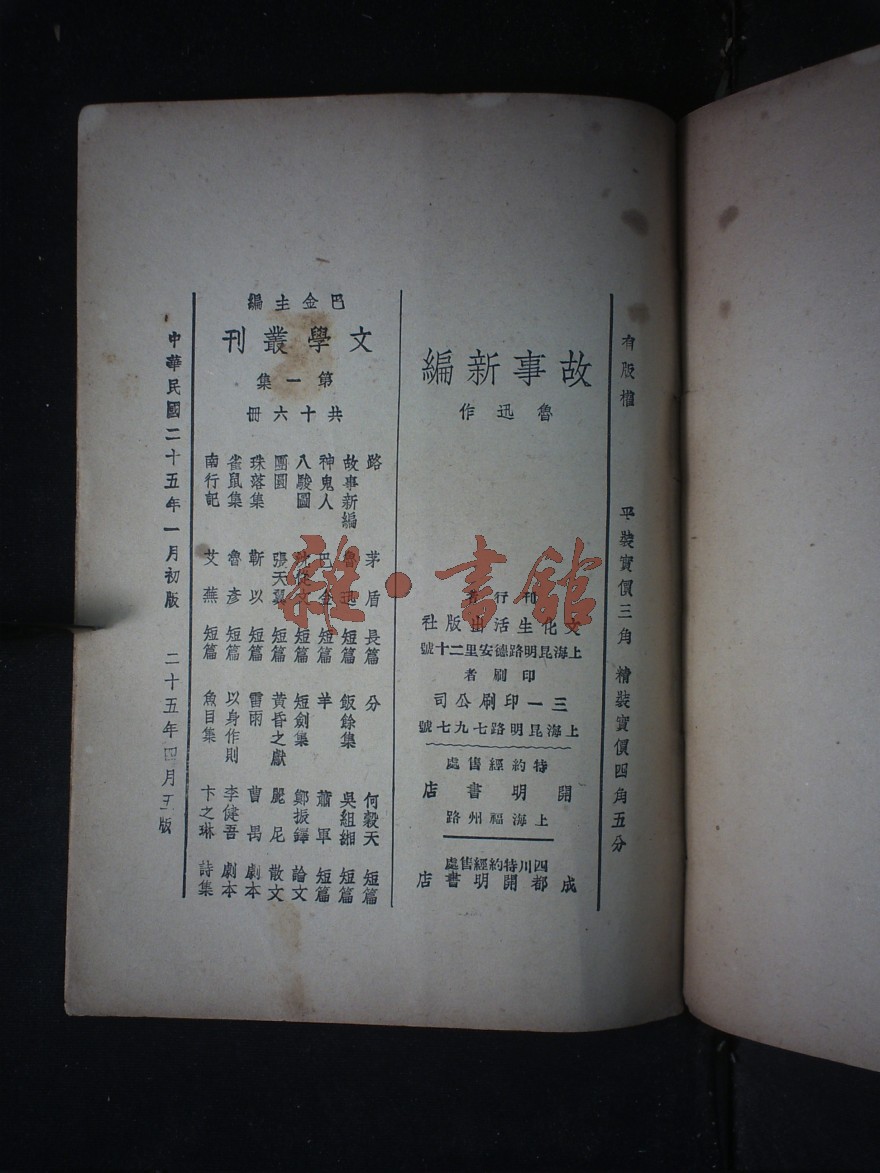 有版權 平裝實價三角 精裝實價四角五分
故事新編
魯迅作
刊行者
文化生活出版社
上海昆明路德安里二十號
印刷者
三一印刷公司
上海昆明路七九七號
特約經售處
開明書店
上海福州路
四川特約經售處
成都開明書店
巴金主編
文學叢刊
第一集
共十六冊
路 茅盾 長篇 分 何穀天 短篇
故事新編 魯迅 短篇 飯餘集 吳組緗 短篇
神鬼人 巴金 短篇 羊 蕭軍 短篇
八駿圖 沈從文 短篇 短劍集 鄭振鐸 論文
團圓 張天翼 短篇 黃昏之獻 麗尼 散文
珠落集 靳以 短篇 雷雨 曹禺 劇本
雀鼠集 魯彥 短篇 以身作則 李健吾 劇本
南行記 艾蕪 短篇 魚目集 卞之琳 詩集
中華民國二十五年一月初版 二十五年四月五版
雜·書館